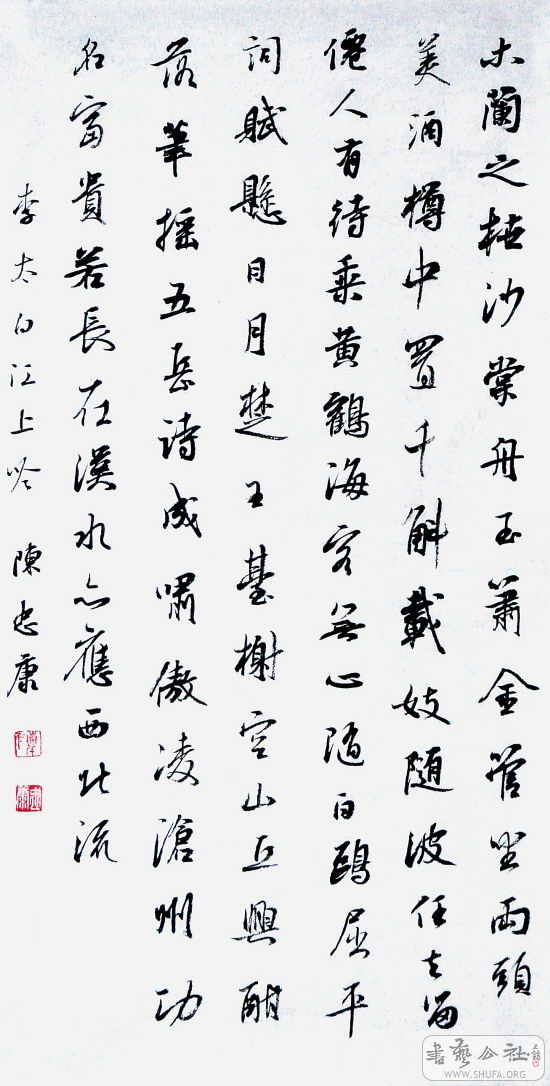 木蘭之枻沙棠舟玉蕭金管坐兩頭
美酒樽中置千斛載妓隨波任去留
僊人有待乘黃鶴海客無心隨白鷗屈平
詞賦懸日月楚王臺榭空山丘興酣
落筆搖五岳詩成嘯傲凌滄州功
名富貴若長在漢水亦應西北流
李太白江上吟 陳忠康
書藝公社
WWW.SHUFA.ORG